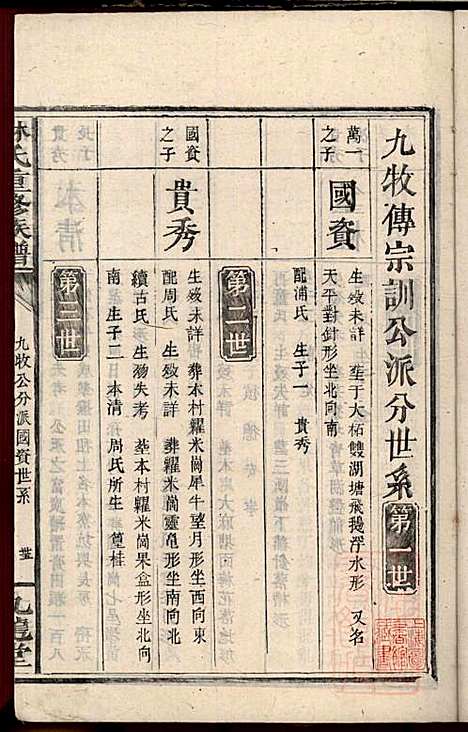 九牧傳宗訓公派分世系
第一世
萬一
之子
國資
生歿未詳 塟于大柘雙湖塘飛鵝浮水形 又名
天平對針形坐北向南
配浦氏 生子一 貴秀
第二世
國資
之子
貴秀
生歿未詳 葬本村糶米崗犀牛望月形坐西向東
配周氏 生歿未詳 葬糶米崗靈亀形坐南向北
續古氏 生殇失考 塟本村糶米崗果盒形坐北向
南 生子二 日本清 周氏所生 篁桂
第三世
林氏重修族譜
九牧公分派國資世系
九龍堂